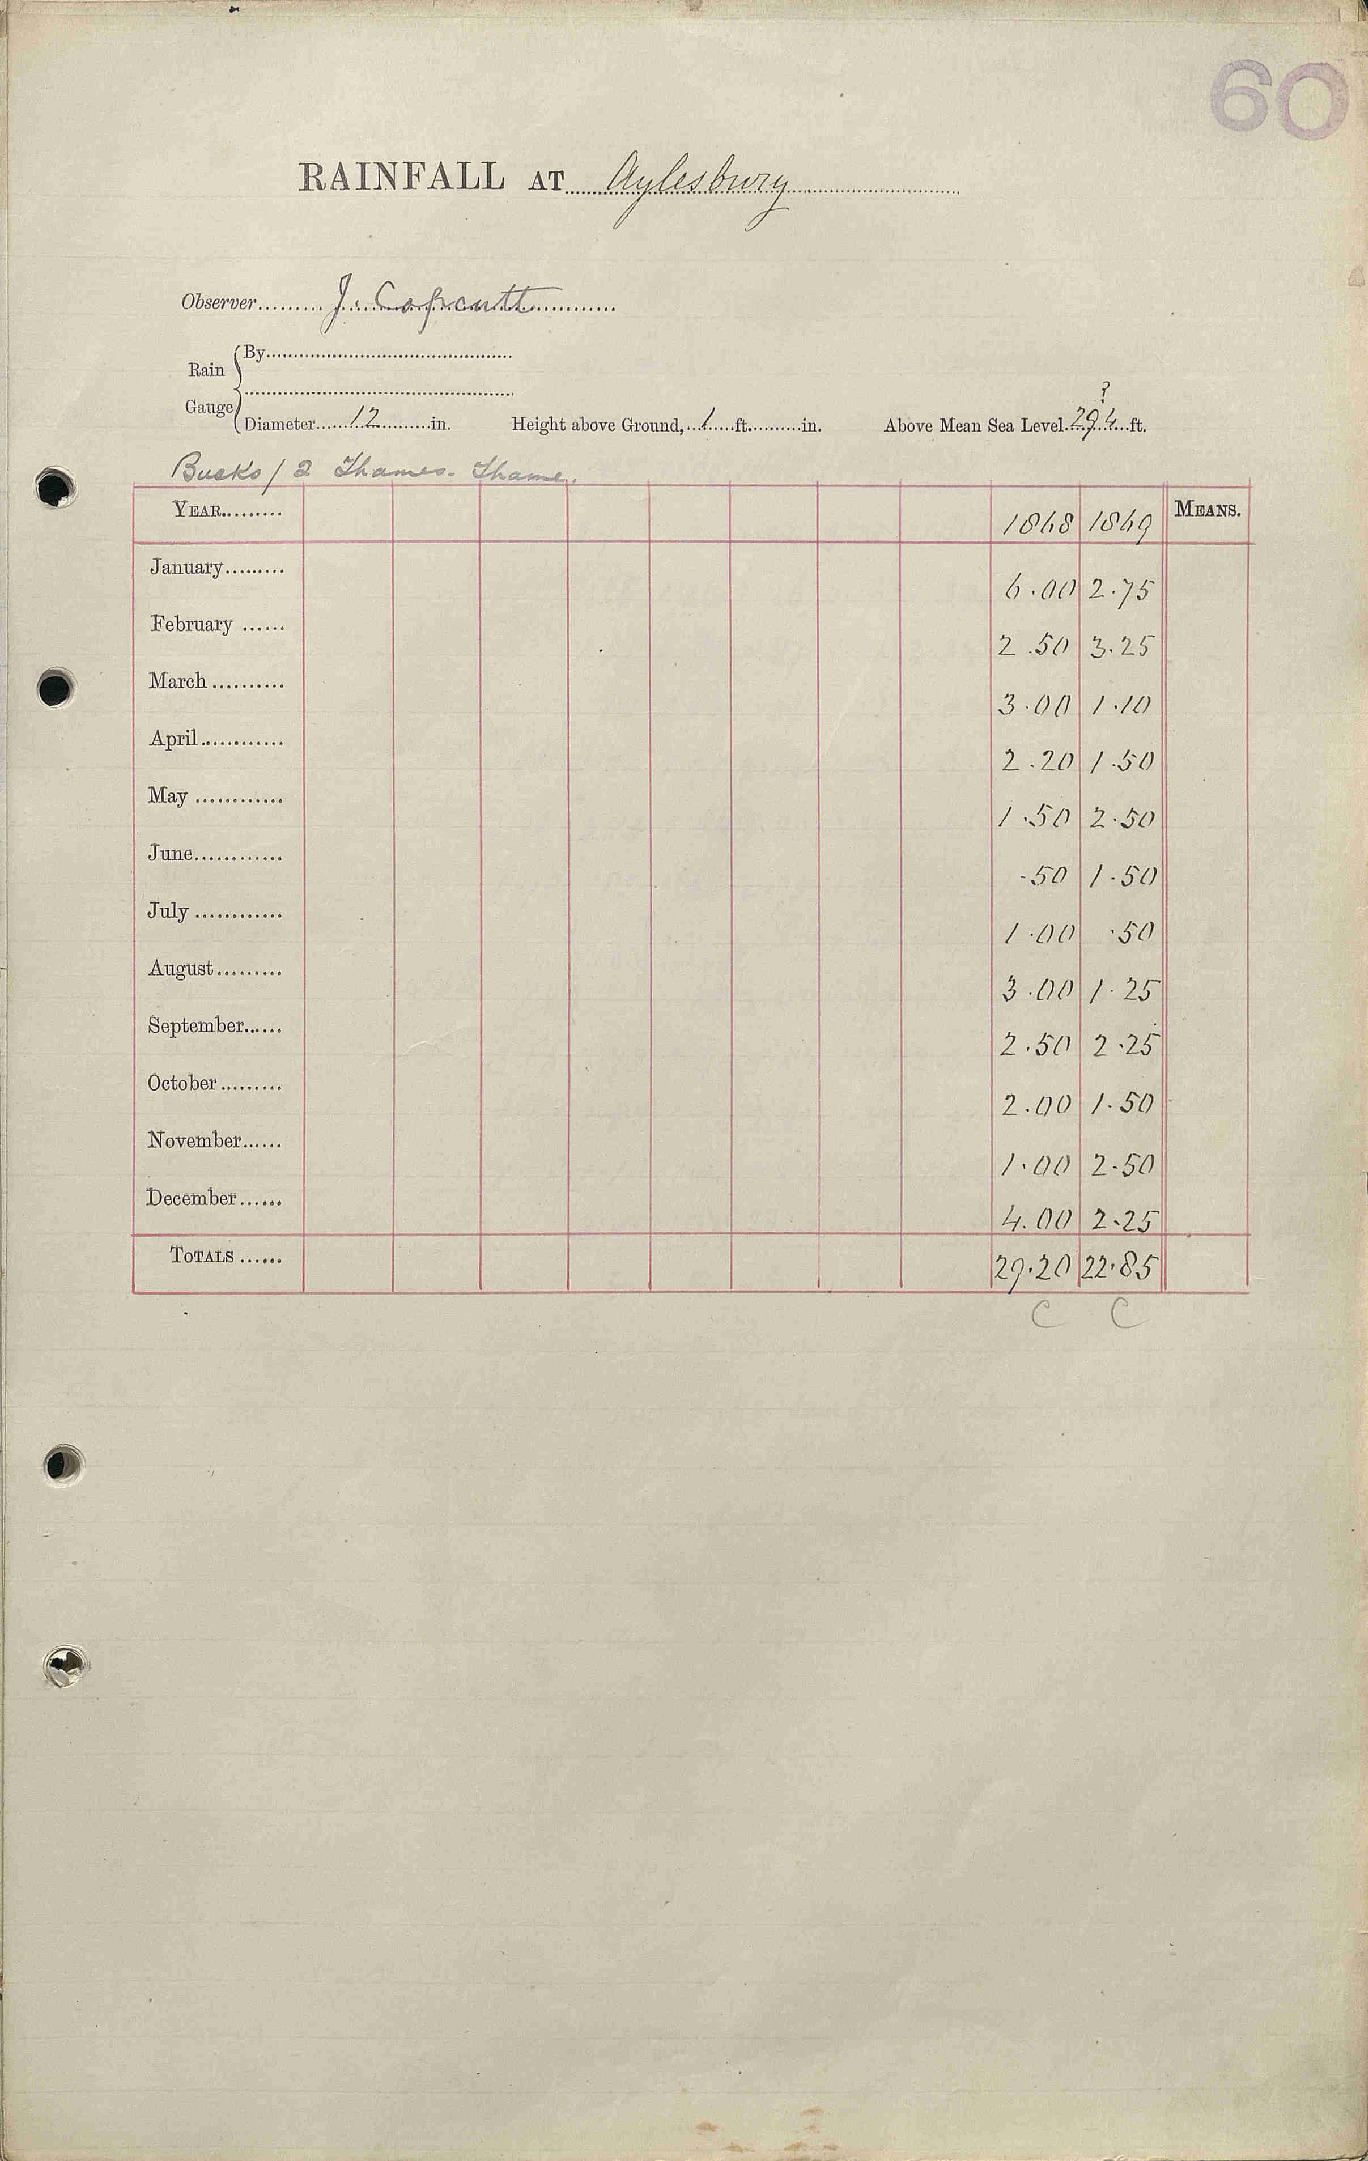 60
RAINFALL AT Aylesbury
Observer J. Copcutt
Rain Gauge
By
Diameter 12 in. Height above Ground, 1 ft. in. Above Mean Sea Level 294 ? ft.
Bucks / 2 Thames - Thame.
YEAR 1868 1869 MEANS.
January 6.00 2.75
February 2.50 3.25
March 3.00 1.10
April 2.20 1.50
May 1.50 2.50
June .50 1.50
July 1.00 .50
August 3.00 1.25
September 2.50 2.25
October 2.00 1.50
November 1.00 2.50
December 4.00 2.25
TOTALS 29.20 22.85
C C